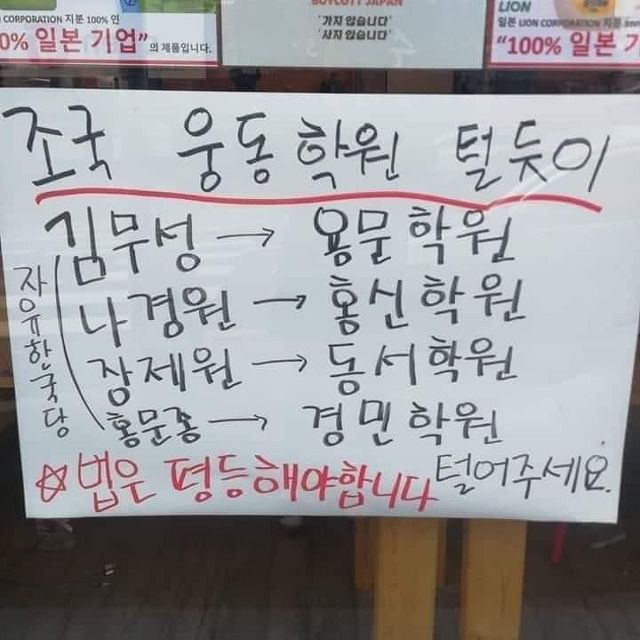 CORPORATION 지분 100% 인
0% 일본 기업" 의 제품입니다.
BOYCOTT JAPAN
'가지 않습니다'
'사지 않습니다'
LION
일본 LION CORPORATION 지분
"100% 일본 기
조국 웅동학원 털듯이
김무성 → 용문학원
나경원 → 홍신학원
장제원 → 동서학원
홍문종 → 경민학원
자유한국당
☆ 법은 평등해야합니다 털어주세요.